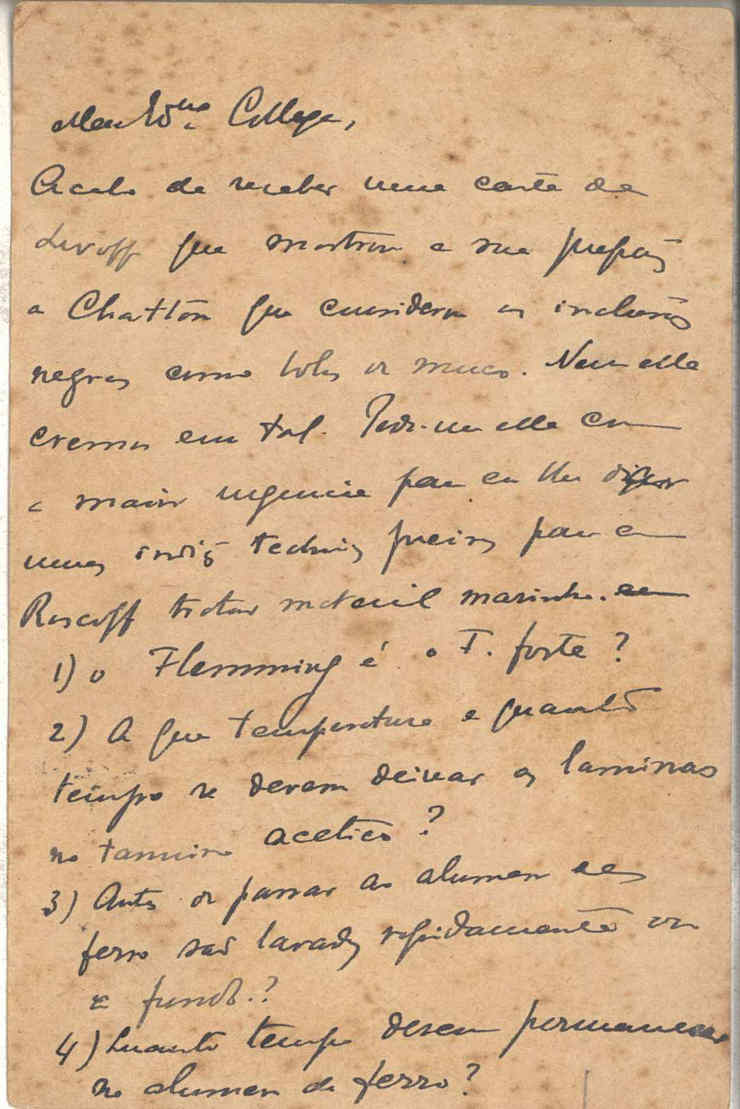 Meu Ex.mo Collega,
Acabo de receber uma carta de
Lwoff que mostrou a sua prepção
a Chatton que considera as inclusões
negras como bolas de muco. Nem elle
cremos em tal. Pede-me elle com
a maior urgencia para eu lhe dizer
umas indicções technicas precisas para em
Roscoff tratar material marinho.
1) o Flemming é o F. forte?
2) A que temperatura e quanto
tempo se devem deixar as laminas
no tannino acetico?
3) Antes de passar ao alumen de
ferro são lavadas rapidamente ou
a fundo?
4) Quanto tempo devem permanecer
no alumen de ferro?